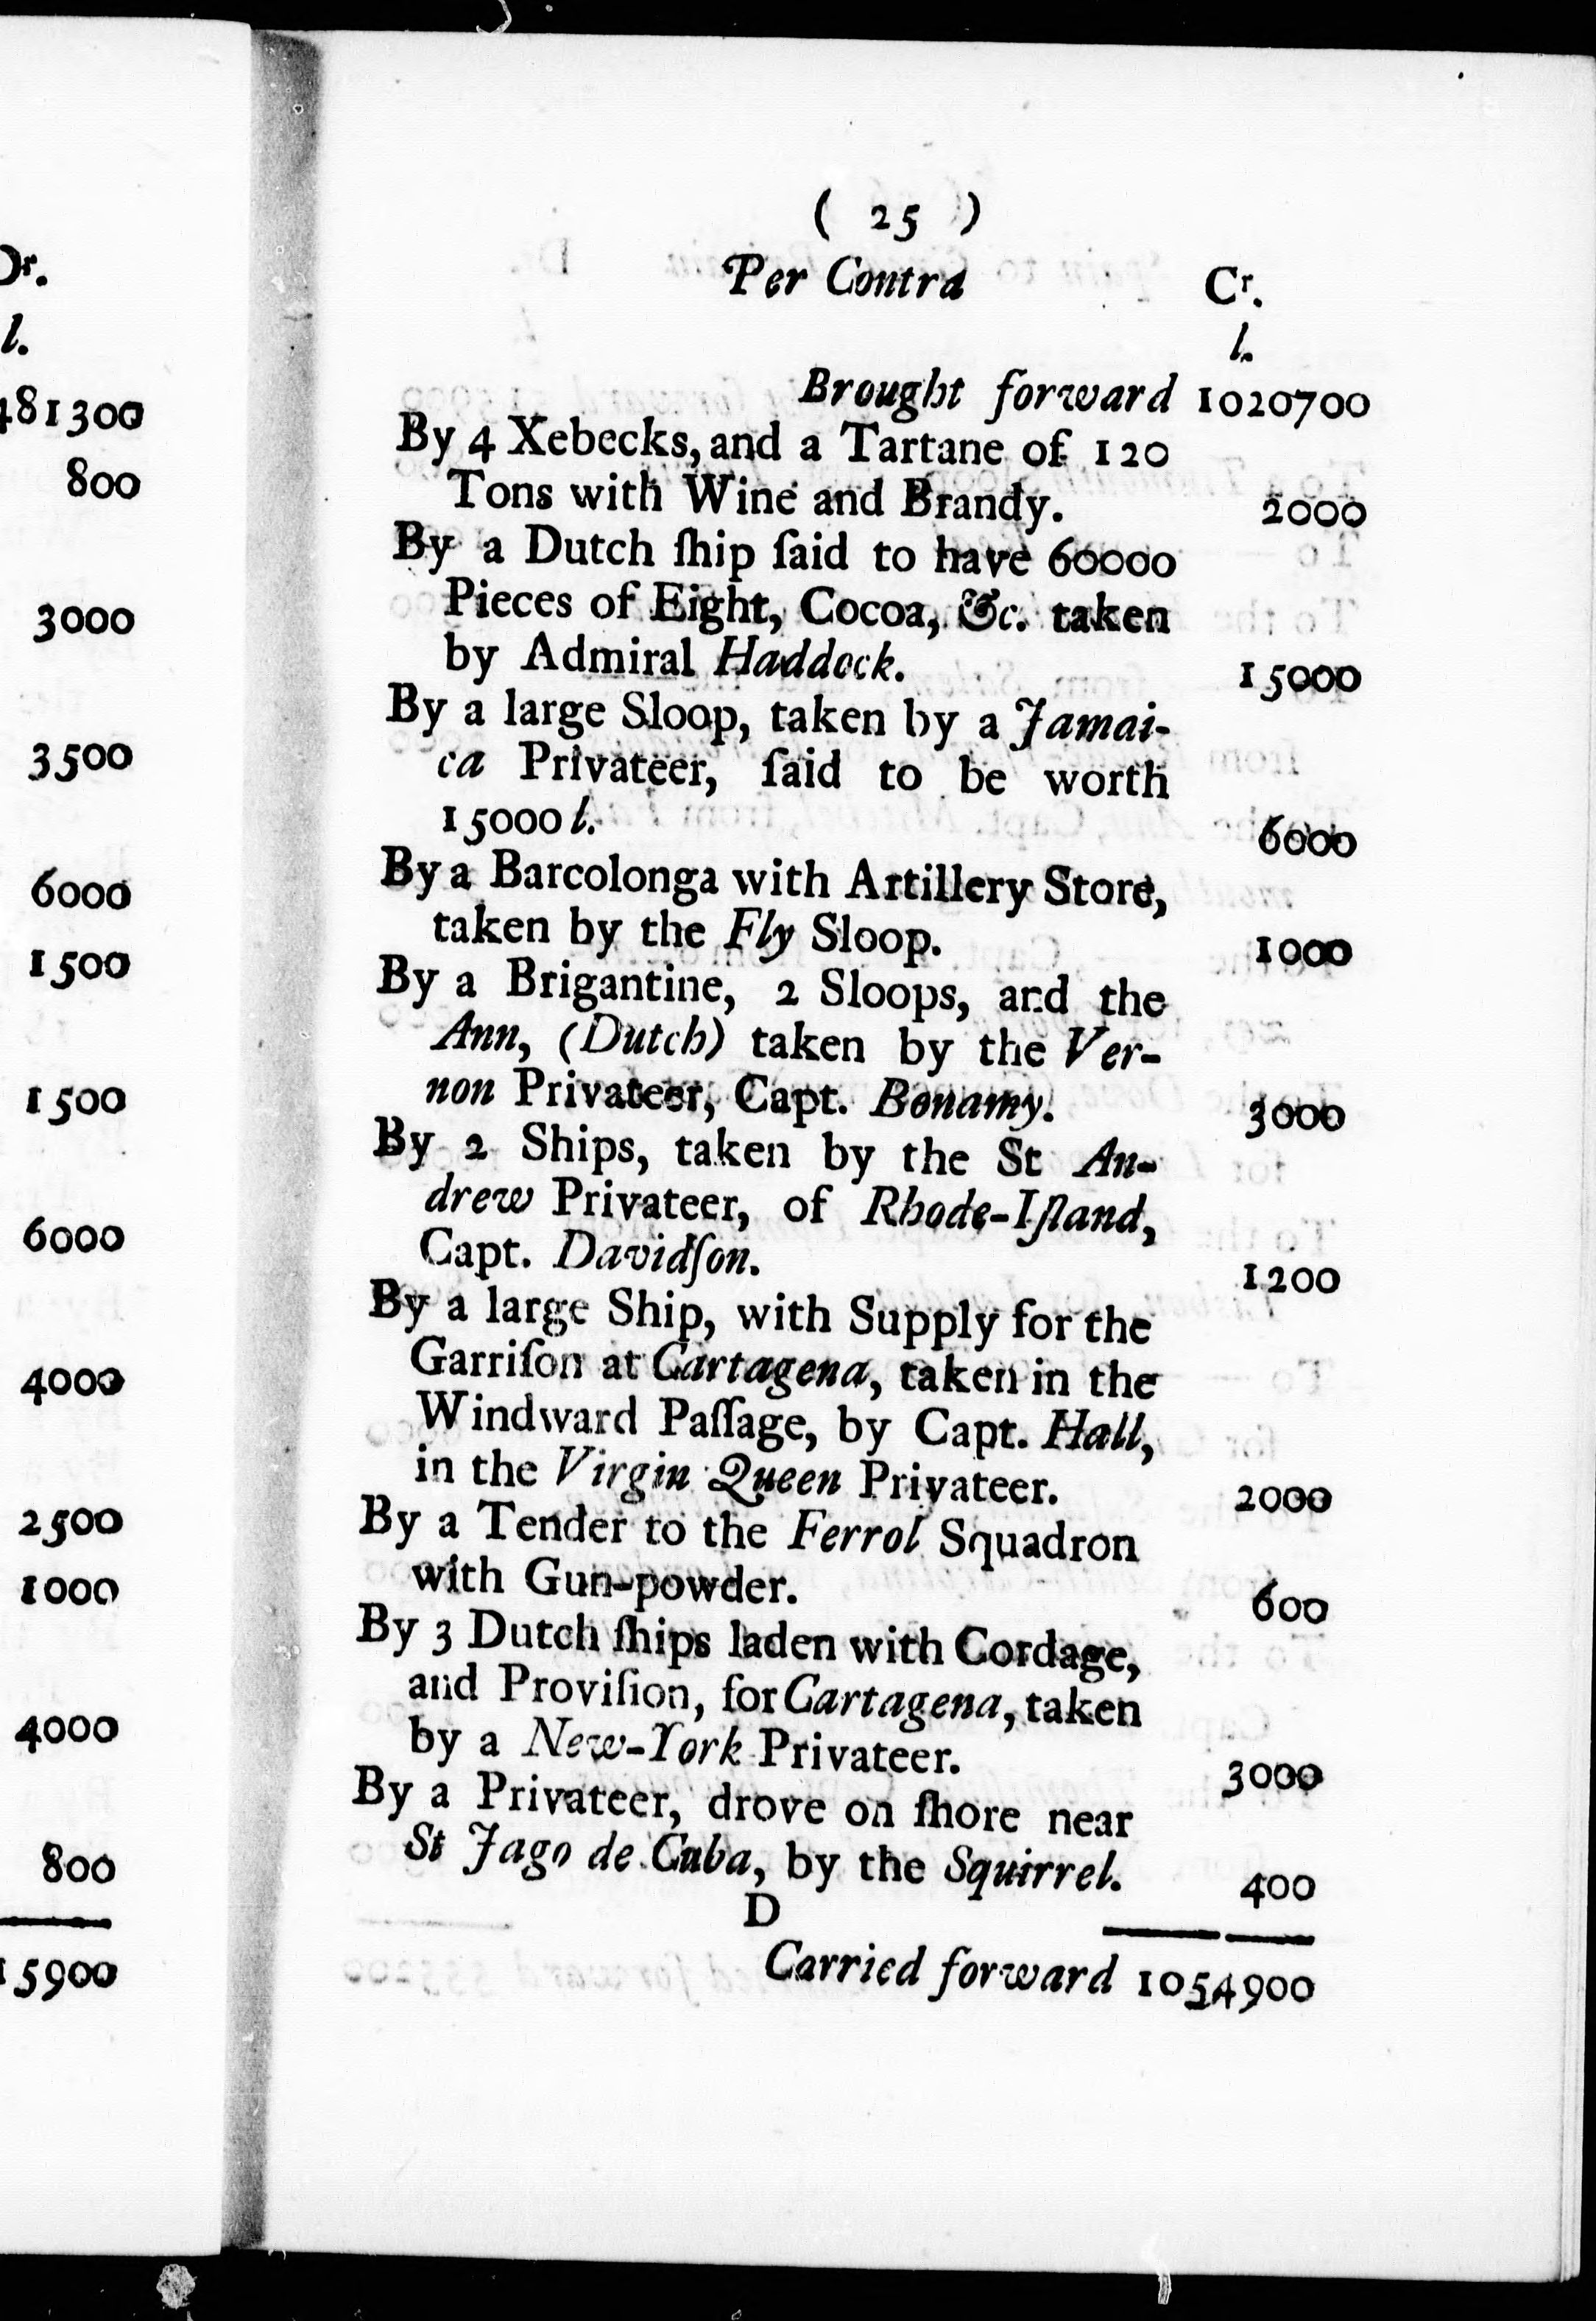 Dr.
l.
481300
800
3000
3500
6000
1500
1500
6000
4000
2500
1000
4000
800
15900
( 25 )
Per Contra Cr.
l.
Brought forward 1020700
By 4 Xebecks, and a Tartane of 120
Tons with Wine and Brandy. 2000
By a Dutch ſhip ſaid to have 60000
Pieces of Eight, Cocoa, &c. taken
by Admiral Haddock. 15000
By a large Sloop, taken by a Jamai-
ca Privateer, ſaid to be worth
15000 l. 6000
By a Barcolonga with Artillery Store,
taken by the Fly Sloop. 1000
By a Brigantine, 2 Sloops, and the
Ann, (Dutch) taken by the Ver-
non Privateer, Capt. Bonamy. 3000
By 2 Ships, taken by the St An-
drew Privateer, of Rhode-Iſland,
Capt. Davidſon. 1200
By a large Ship, with Supply for the
Garriſon at Cartagena, taken in the
Windward Paſſage, by Capt. Hall,
in the Virgin Queen Privateer. 2000
By a Tender to the Ferrol Squadron
with Gun-powder. 600
By 3 Dutch ſhips laden with Cordage,
and Proviſion, for Cartagena, taken
by a New-York Privateer. 3000
By a Privateer, drove on ſhore near
St Jago de Cuba, by the Squirrel. 400
D
Carried forward 1054900